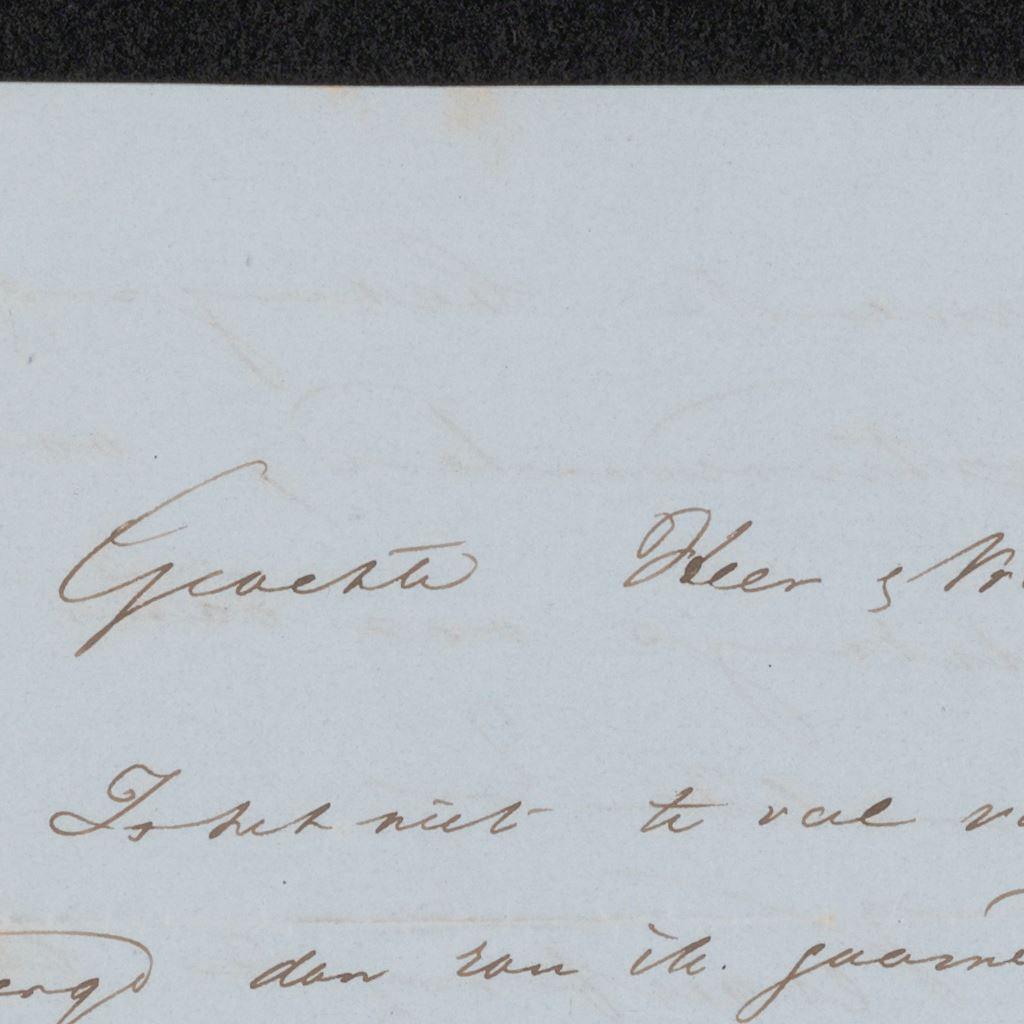 Geachte Heer & Vr
Is het niet te veel v
ergd dan zou ik gaarne